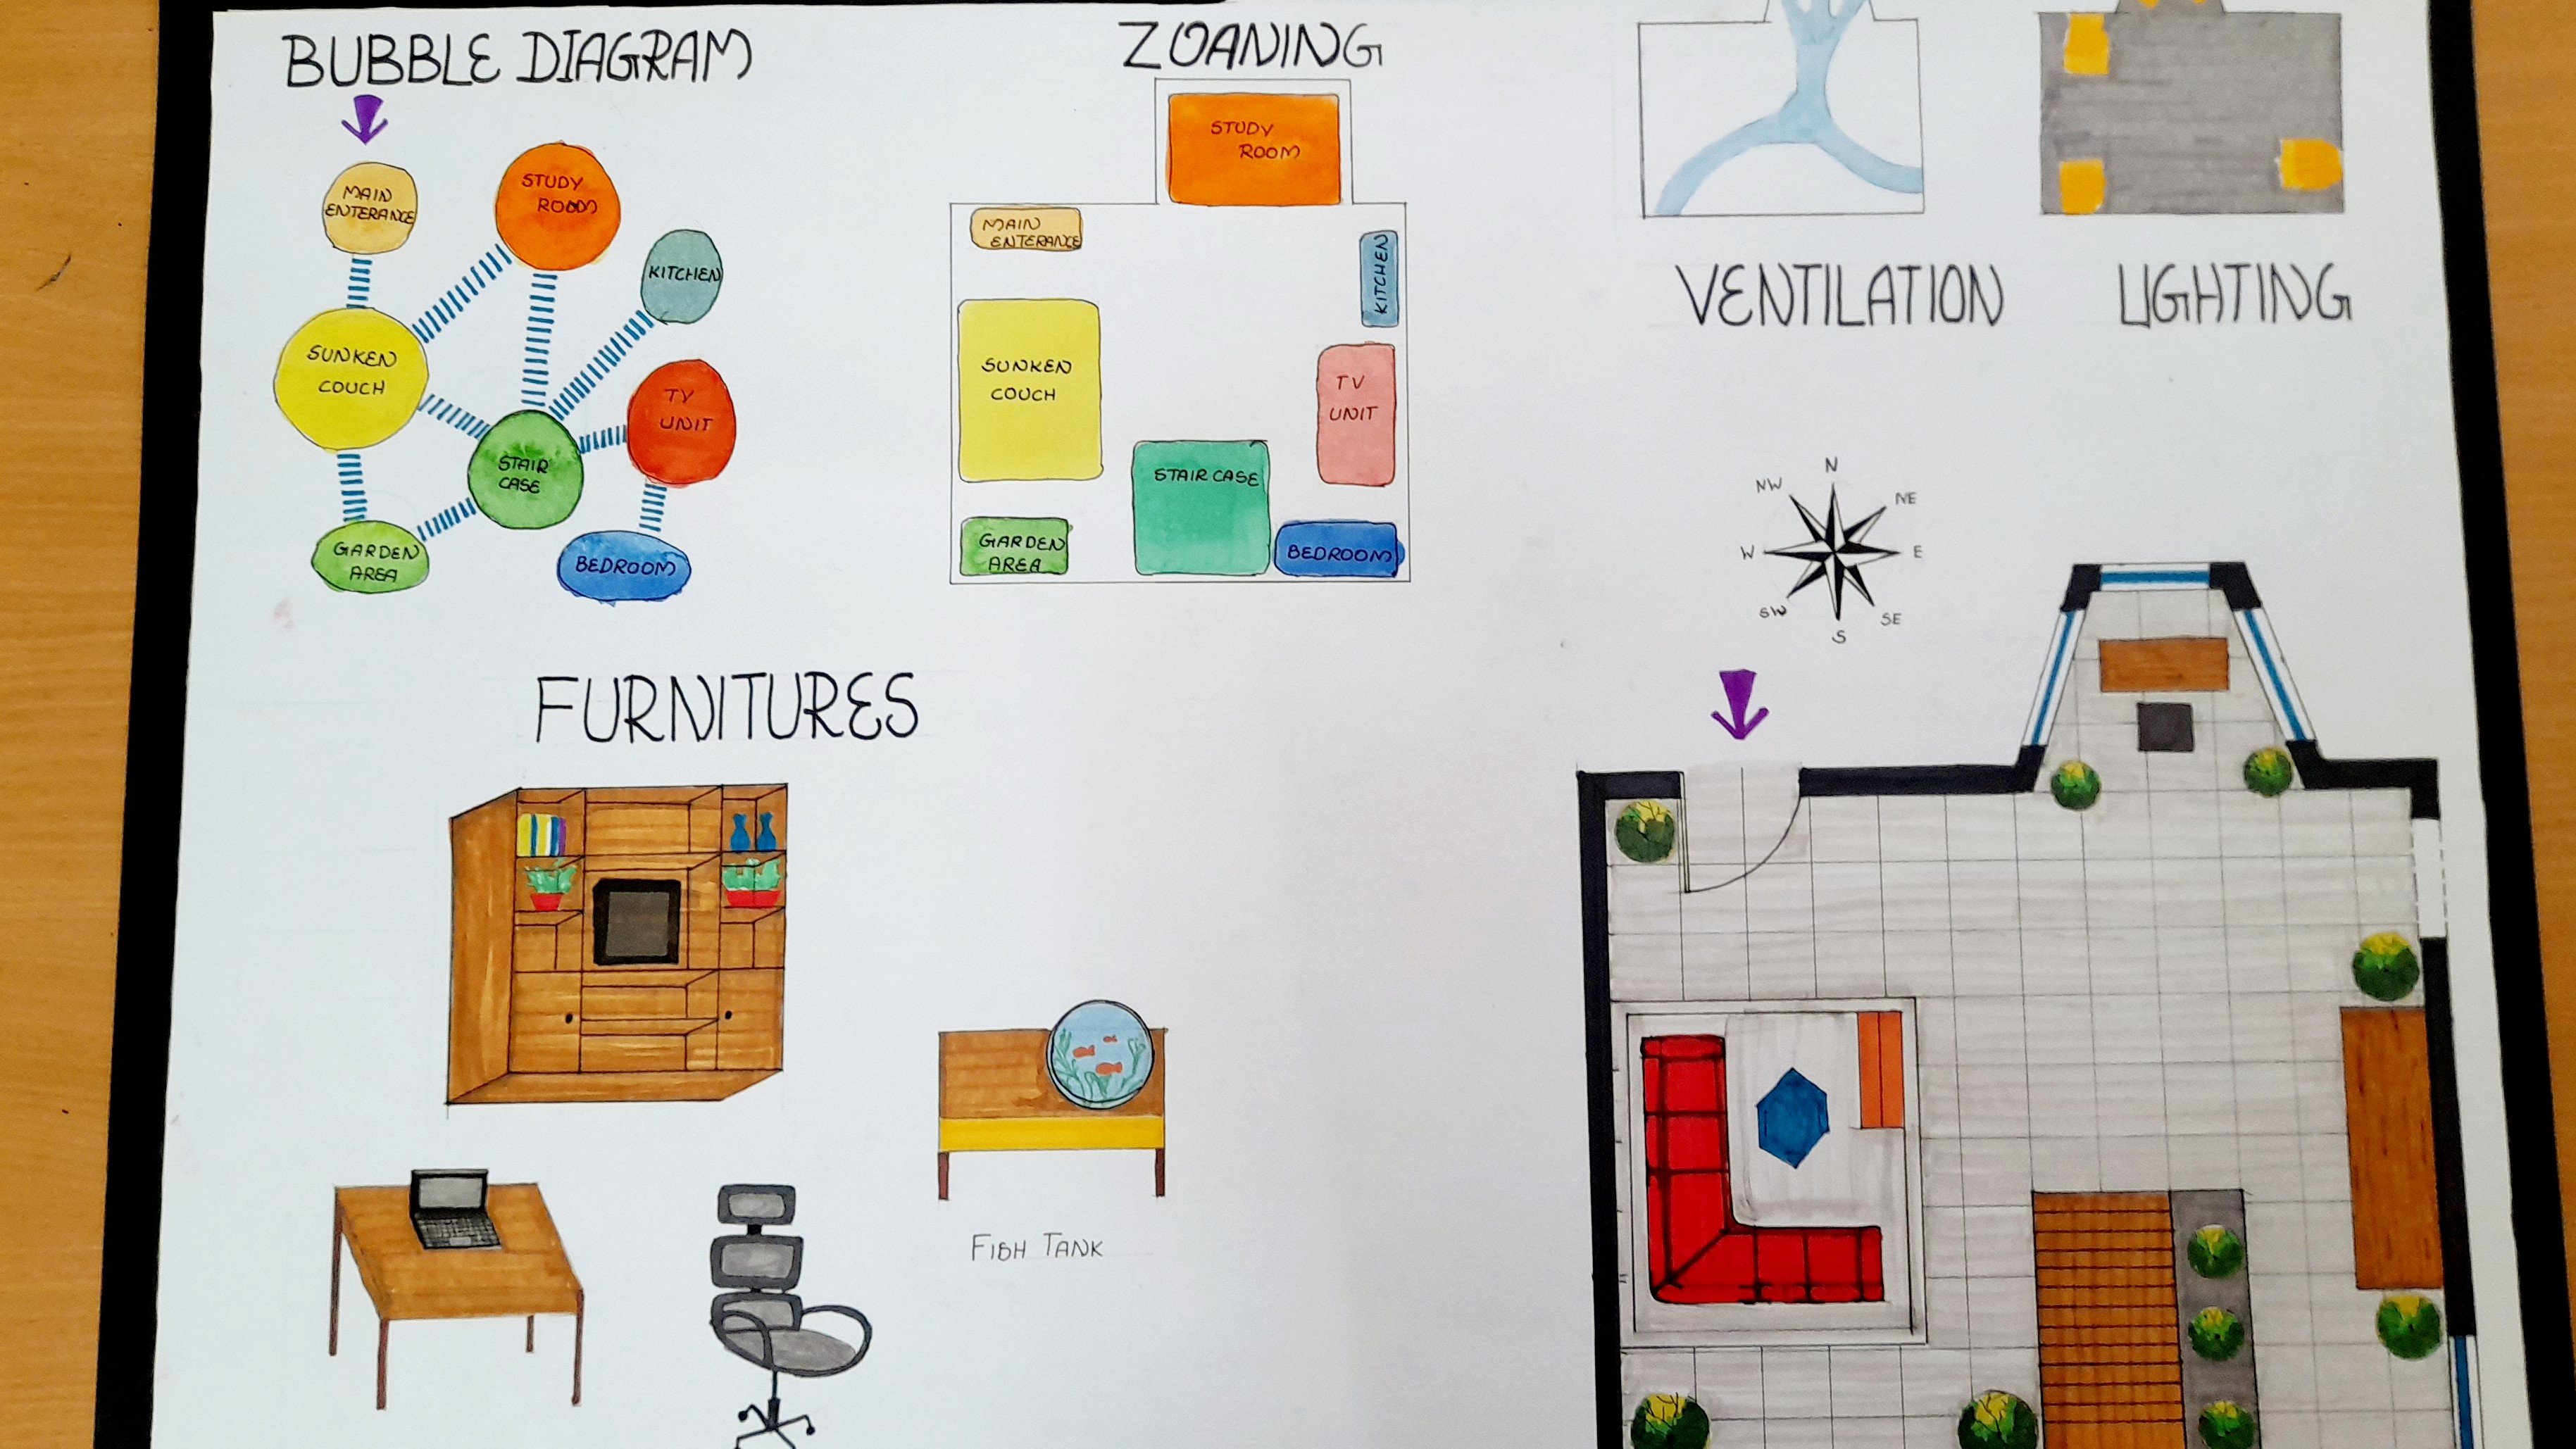 BUBBLE DIAGRAM
MAIN
ENTERANCE
STUDY
ROOM
KITCHEN
SUNKEN
COUCH
TV
UNIT
STAIR
CASE
GARDEN
AREA
BEDROOM
ZOANING
STUDY
ROOM
MAIN
ENTERANCE
KITCHEN
SUNKEN
COUCH
TV
UNIT
STAIR CASE
GARDEN
AREA
BEDROOM
VENTILATION
LIGHTING
N
NW
NE
W
E
SW
SE
S
FURNITURES
FISH TANK